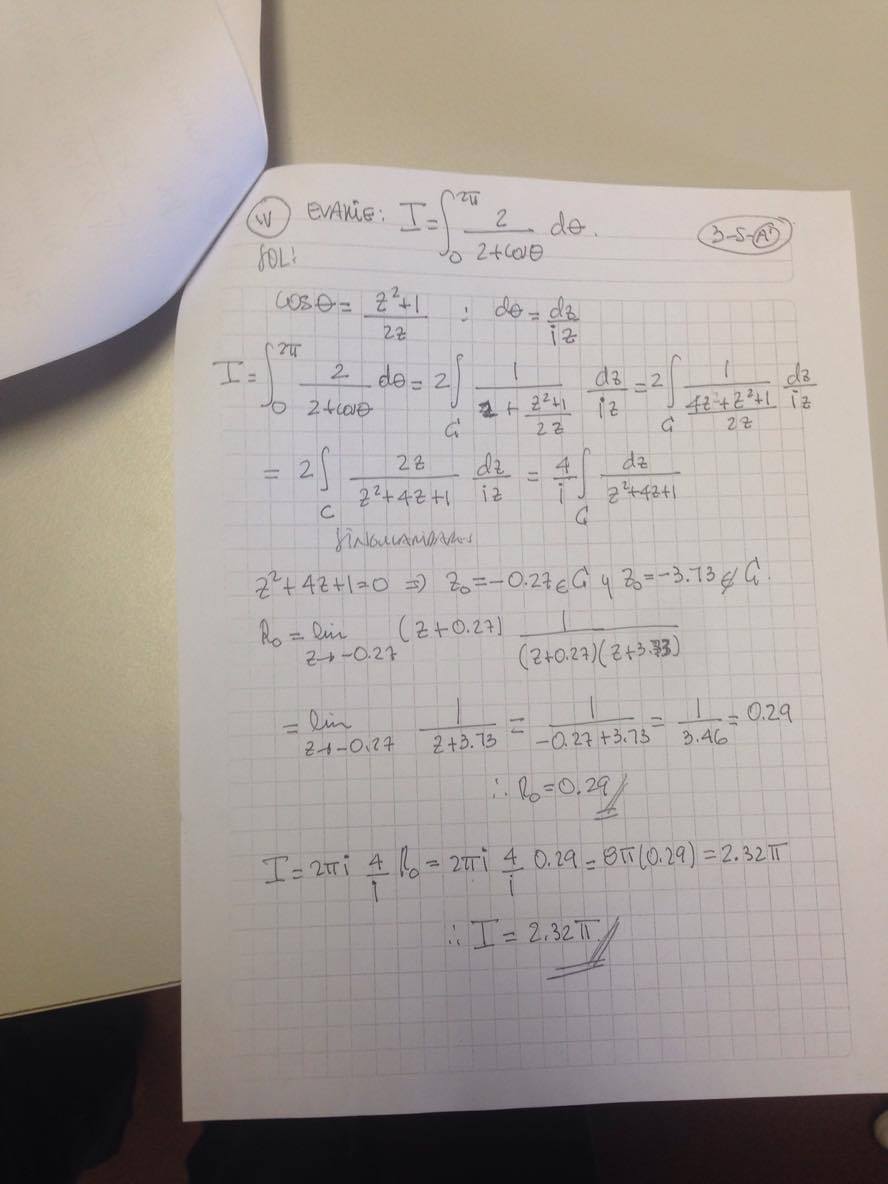 IV EVALÚE: I = ∫₀^2π 2/(2+cosθ) dθ. 3-5-A3
SOL:
cosθ = (z²+1)/2z ; dθ = dz/iz
I = ∫₀^2π 2/(2+cosθ) dθ = 2∫_C 1/(2 + (z²+1)/2z) dz/iz = 2∫_C 1/((4z+z²+1)/2z) dz/iz
= 2∫_C 2z/(z²+4z+1) dz/iz = 4/i ∫_C dz/(z²+4z+1)
SINGULARIDADES
z²+4z+1=0 ⇒ z₀=-0.27 ∈ C y z₀=-3.73 ∉ C.
R₀ = lim z→-0.27 (z+0.27) 1/((z+0.27)(z+3.73))
= lim z→-0.27 1/(z+3.73) = 1/(-0.27+3.73) = 1/3.46 = 0.29
∴ R₀ = 0.29
I = 2πi 4/i R₀ = 2πi 4/i 0.29 = 8π(0.29) = 2.32π
∴ I = 2.32π